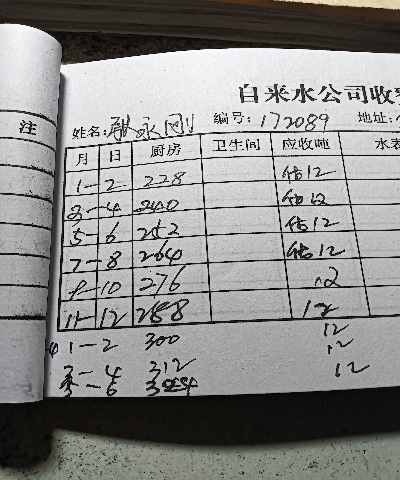 自来水公司收
注
姓名: 永刚 编号: 172089 地址:
月 日 厨房 卫生间 应收吨 水表
1-2 228 估12
3-4 240 估12
5-6 252 估12
7-8 264 估12
9-10 276 12
11-12 288 12
1-2 300 12
3-4 312 12
5-6 12